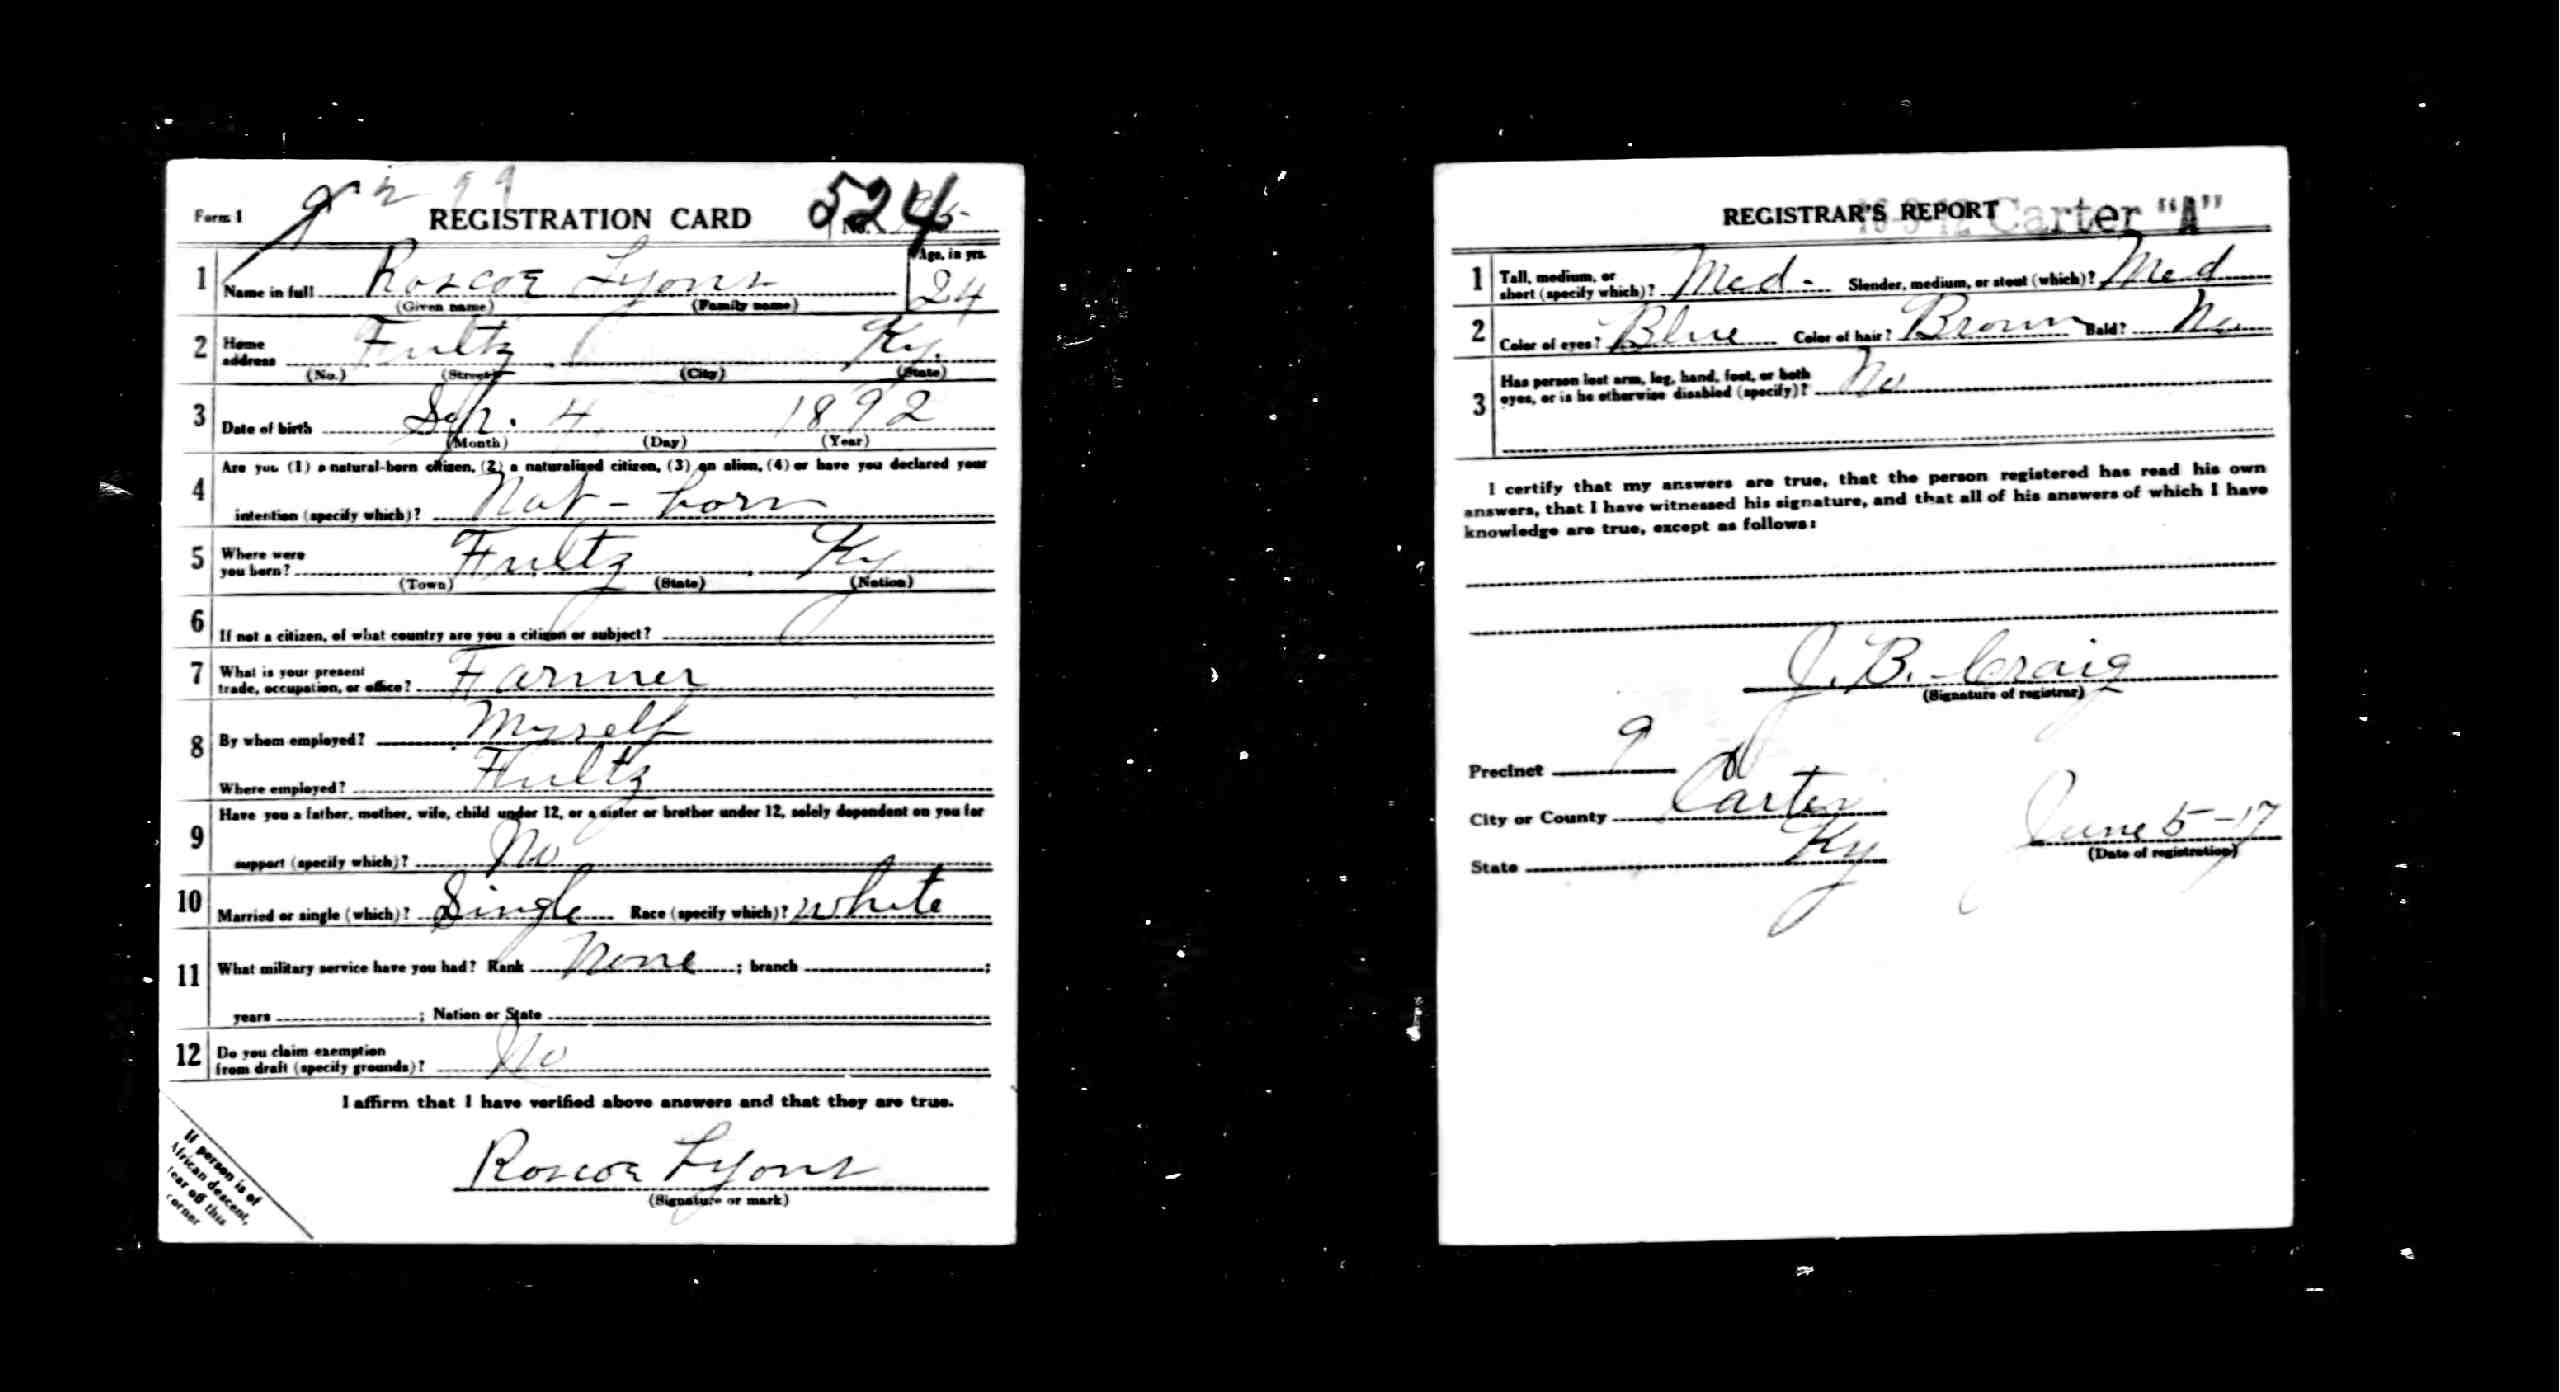 Form 1
REGISTRATION CARD
524
No.
1 Name in full Roscoe Lyons
(Given name) (Family name)
Age, in yrs.
24
2 Home address Fultz Ky.
(No.) (Street) (City) (State)
3 Date of birth Sep. 4 1892
(Month) (Day) (Year)
4 Are you (1) a natural-born citizen, (2) a naturalized citizen, (3) an alien, (4) or have you declared your
intention (specify which)? Nat - born
5 Where were you born? Fultz Ky
(Town) (State) (Nation)
6 If not a citizen, of what country are you a citizen or subject?
7 What is your present
trade, occupation, or office? Farmer
8 By whom employed? Myself
Where employed? Fultz
9 Have you a father, mother, wife, child under 12, or a sister or brother under 12, solely dependent on you for
support (specify which)? No
10 Married or single (which)? Single Race (specify which)? White
11 What military service have you had? Rank None ; branch ;
years ; Nation or State
12 Do you claim exemption
from draft (specify grounds)? No
I affirm that I have verified above answers and that they are true.
Roscoe Lyons
(Signature or mark)
If person is of
African descent,
tear off this
corner
REGISTRAR'S REPORT
Carter "A"
1 Tall, medium, or
short (specify which)? Med - Slender, medium, or stout (which)? Med
2 Color of eyes? Blue Color of hair? Brown Bald? No
3 Has person lost arm, leg, hand, foot, or both
eyes, or is he otherwise disabled (specify)? No
I certify that my answers are true, that the person registered has read his own
answers, that I have witnessed his signature, and that all of his answers of which I have
knowledge are true, except as follows:
J. B. Craig
(Signature of registrar)
Precinct 9
City or County Carter
State Ky
June 5-17
(Date of registration)